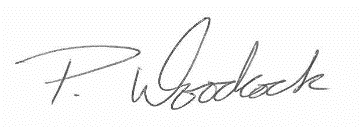 P. Woodcock